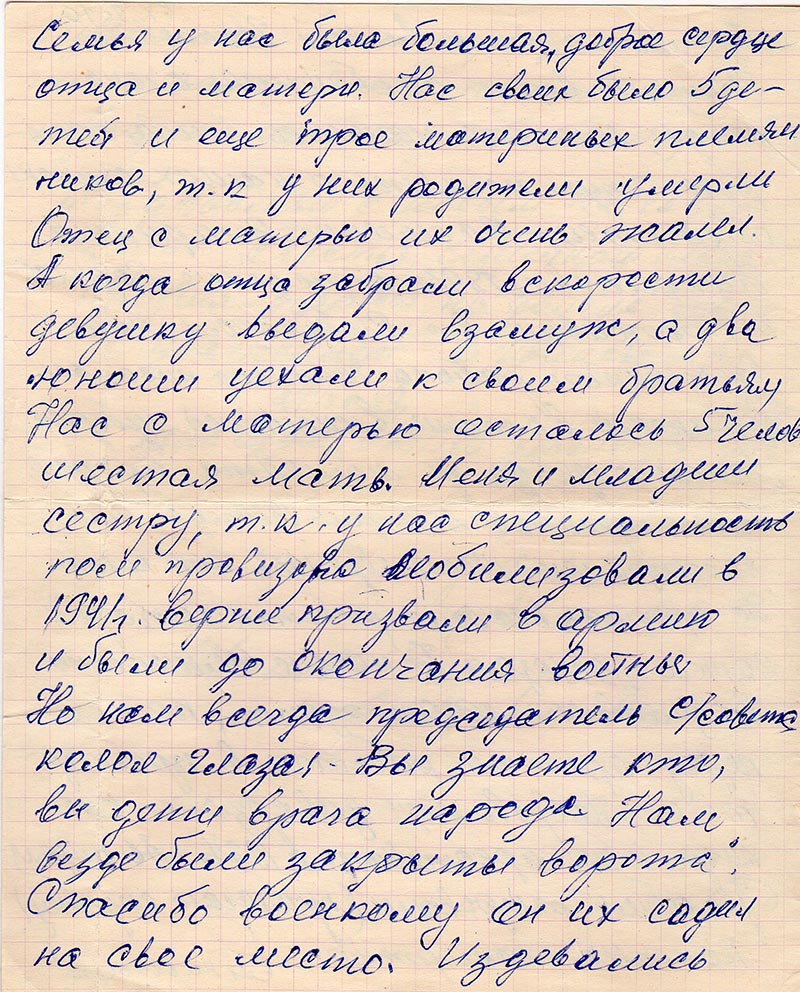 Семья у нас была большая, доброе сердце
отца и матери. Нас своих было 5 де-
тей и еще трое материных племян
ников, т.к у них родители умерли
Отец с матерью их очень жалел.
А когда отца забрали вскорости
девушку выдали взамуж, а два
юноши уехали к своим братьям
Нас с матерью осталось 5 челов
шестая мать. Меня и младшую
сестру, т.к. у нас специальность
мобилизовали в
1941г. вернее призвали в армию
и были до окончания войны
Но нам всегда председатель с/совета
колол глаза! - Вы знаете кто,
вы дети врага народа. Нам
везде были закрыты ворота".
Спасибо военкому он их садил
на свое место. Издевались